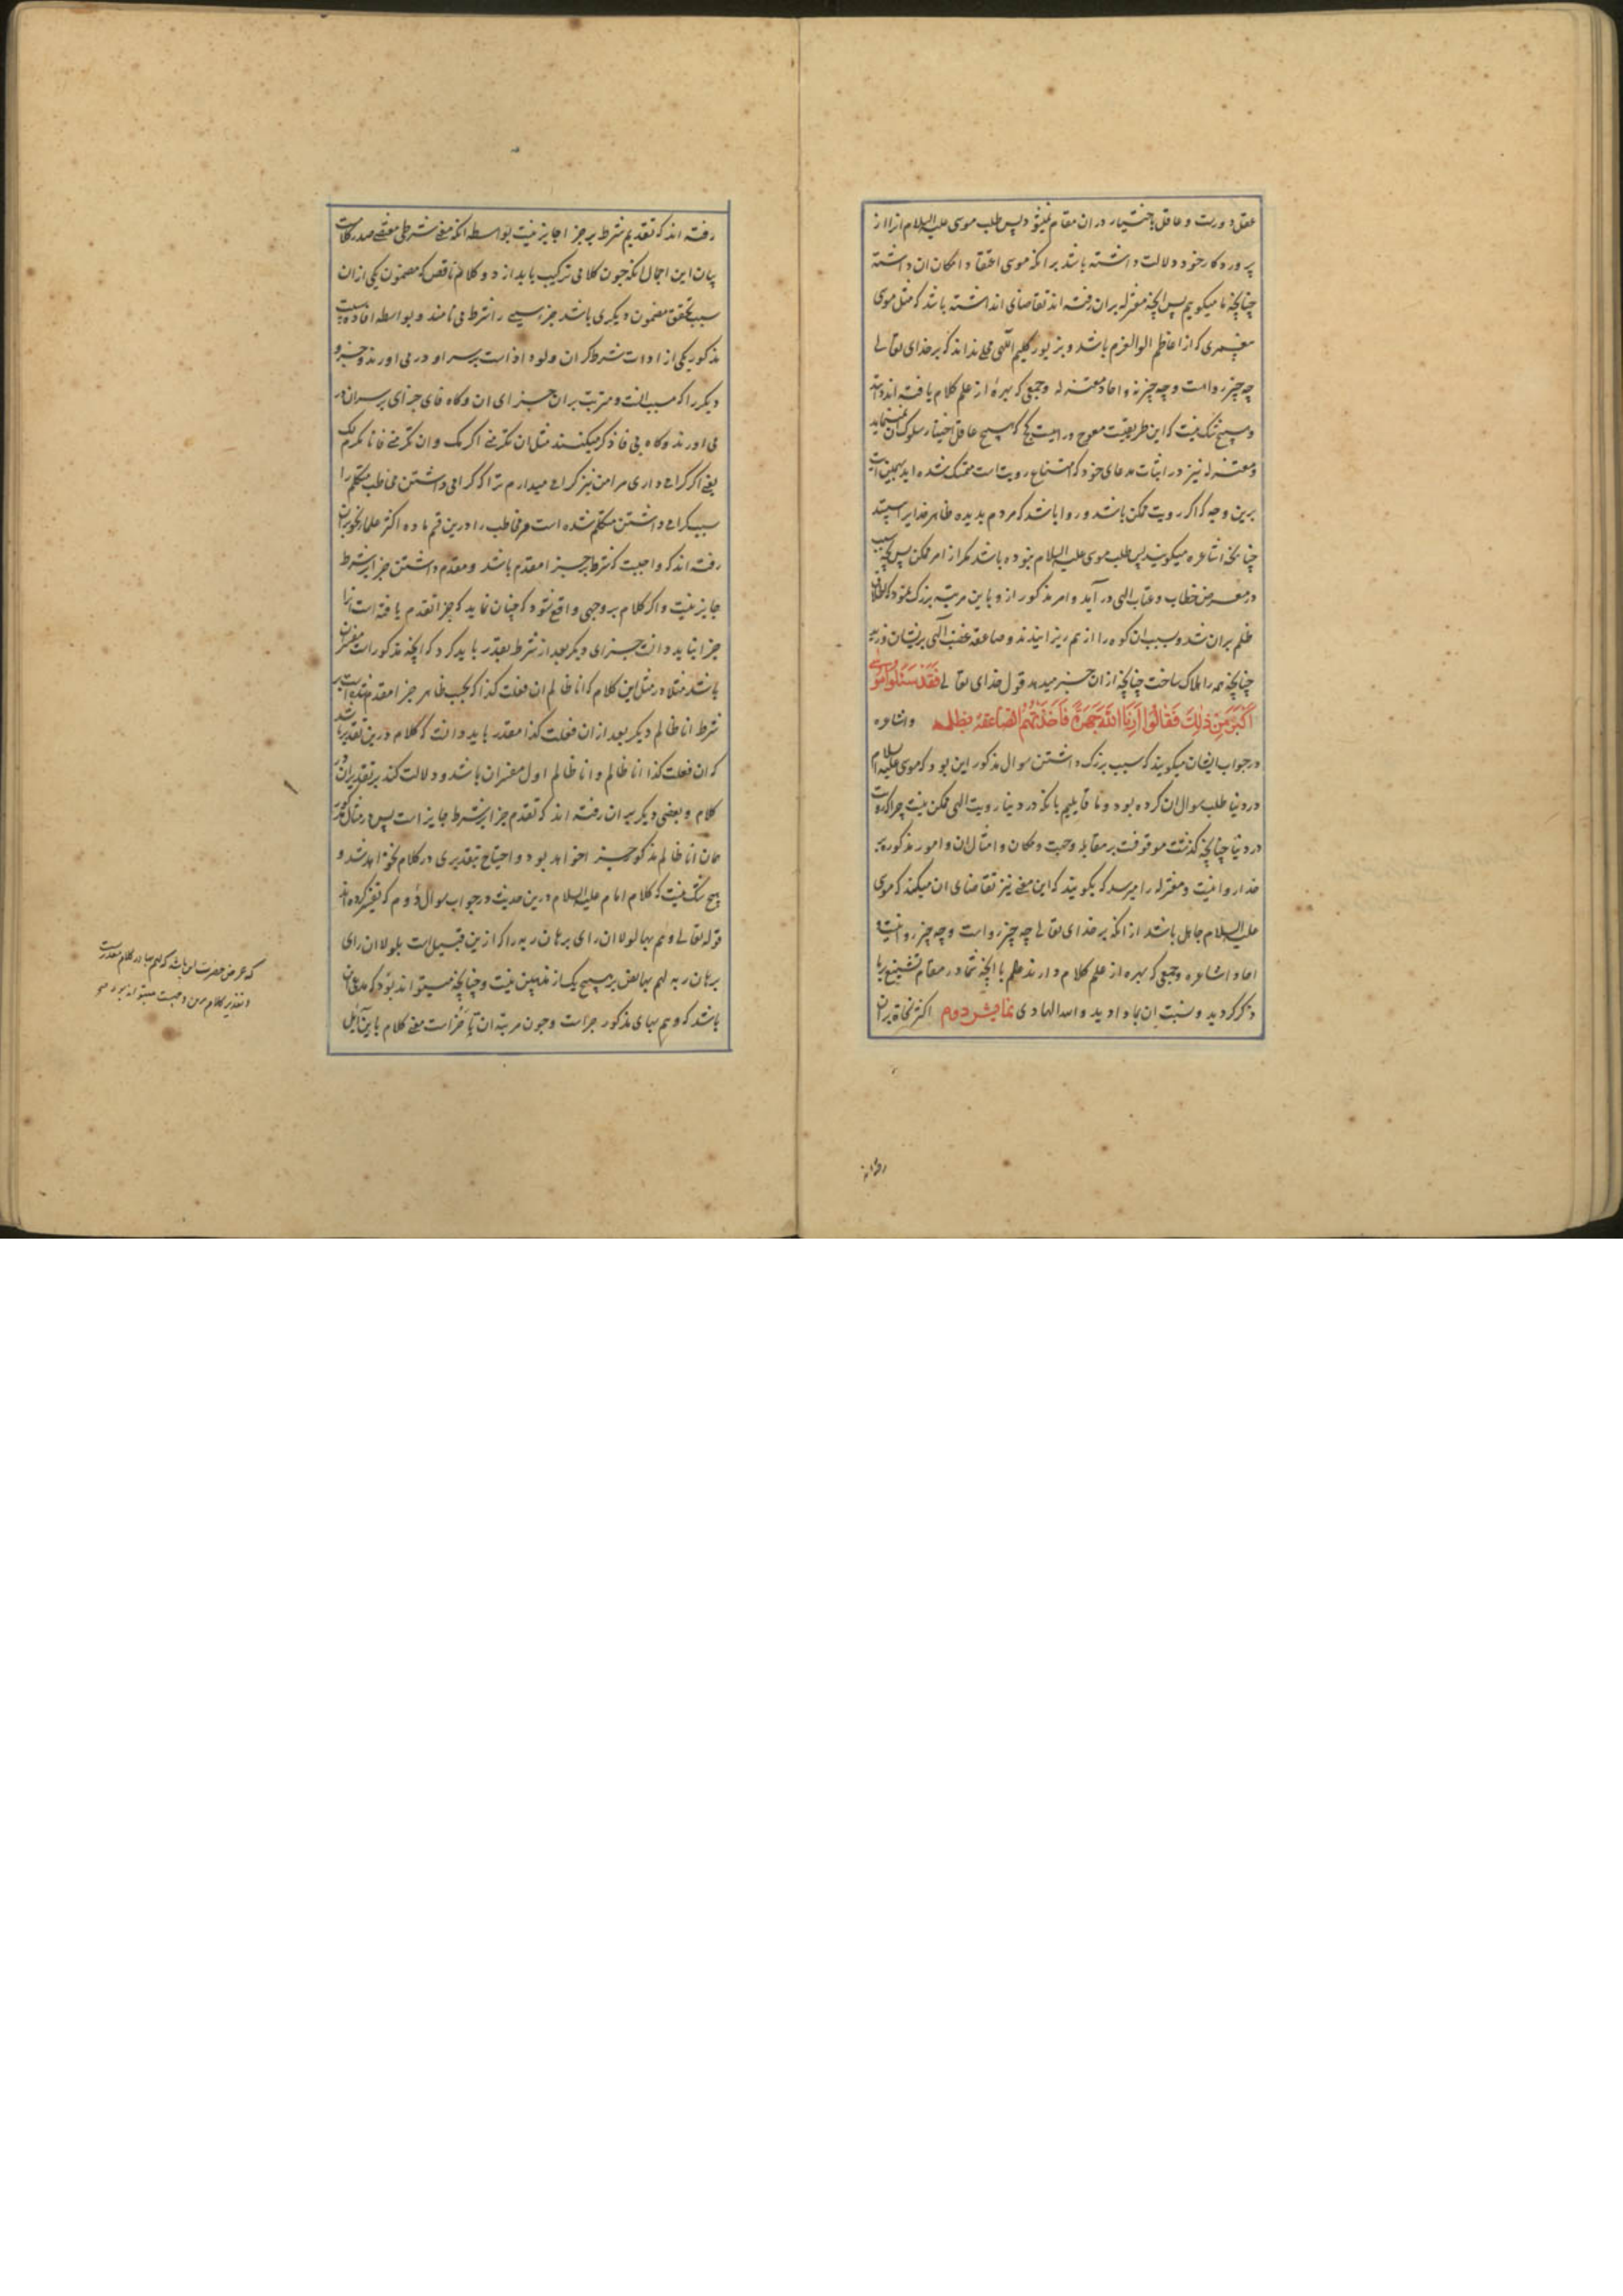 عقل دورست و عاقل باختیار در ان مقام نمیشود پس طلب موسی علیه السلام انرا از
پروردکار خود دلالت داشته باشد برانکه موسی اعتقاد امکان ان داشته
چنانچه ما میکوییم پس انچه معتزله بران رفته اند تقاضای ان داشته باشد که مثل موسی
پیغمبری که از اعاظم اولوالعزم باشد و بزیور کلیم اللهی محلی نداند که بر خدای تعالی
چه چیز رواست و چه چیز نه و احاد معتزله و جمعی که بهره از علم کلام یافته اند دانند
و هیچ شک نیست که این طریقیست معوج و راهیست کج که هیچ عاقل اختیار سلوک ان ننماید
و معتزله نیز در اثبات مدعای خود که امتناع رویت است متمسک شده اند بهمین آیت
برین وجه که اکر رویت ممکن باشد و روا باشد که مردم بدیده ظاهر خدایرا ببینند
چنانچه اشاعره میکویند پس طلب موسی علیه السلام نبوده باشد مکر از امر ممکن پس بچه سبب
در معرض خطاب و عتاب الهی در آید و امر مذکور ازو باین مرتبه بزرک نمود که اطلاق
ظلم بران شد و بسبب ان کوه را از هم ریزانیدند و صاعقه غضب الهی بریشان وزید
چنانچه همه را هلاک ساخت چنانچه ازان خبر میدهد قول خدای تعالی فَقَدْ سَئَلُوا مُوسٰی
اَکْبَرَ مِنْ ذٰلِکَ فَقَالُوا اَرِنَا اللّٰهَ جَهْرَةً فَاَخَذَتْهُمُ الصَّاعِقَةُ بِظُلْمِهِمْ و اشاعره
در جواب ایشان میکویند که سبب بزرک داشتن سوال مذکور این بود که موسی علیه السلام
در دنیا طلب سوال ان کرده بود و ما قایلیم بانکه در دنیا رویت الهی ممکن نیست چراکه رویت
در دنیا چنانچه کذشت موقوفست بر مقابله و جهت و مکان و امثال ان و امور مذکوره بر
خدا روا نیست و معتزله را میرسد که بکویند که این معنی نیز تقاضای ان میکند که موسی
علیه السلام جاهل باشد از انکه بر خدای تعالی چه چیز رواست و چه چیز روا نیست و
احاد اشاعره و جمعی که بهره از علم کلام دارند علم با انچه شما در مقام تشنیع بر ما
ذکر کردید و نسبت ان بما دادید والله الهادی نمایش دوم اکثر نحاة بران
رفته اند
رفته اند که تقدیم شرط بر جزا جایز نیست بواسطه انکه معنی شرطی مقتضی صدر کلامست
بیان این اجمال انکه چون کلامی ترکیب یابد از دو کلام ناقص که مضمون یکی ازان
سبب تحقق مضمون دیکری باشد جزء سببی را شرط می نامند و بواسطه افاده سببیت
مذکور یکی از ادوات شرط که ان ولو و اذاست بر سر او در می اورند و جزء
دیکر را که مسبب است و مترتب بران جزای ان و کاه فای جزای بر سر ان در
می اورند و کاه بی فا ذکر میکنند مثل ان تکرمنی اکرمک و ان تکرمنی فانا مکرم لک
یعنی اکر کرامی داری مرا من نیز کرامی میدارم ترا که کرامی داشتن مخاطب متکلم را
سبب کرامی داشتن متکلم شده است مر مخاطب را درین قسم ماده اکثر علماء نحو بران
رفته اند که واجبست که شرط بر جزا مقدم باشد و مقدم داشتن جزا بر شرط
جایز نیست و اکر کلام بر وجهی واقع شود که چنان نماید که جزا تقدم یافته است انرا
جزا نباید دانست جزای دیکر بعد از شرط مقدر باید کرد که انچه مذکور است مفسر ان
باشد مثلا در مثل این کلام که انا ظالم ان فعلت کذا که بحسب ظاهر جزا مقدم شده است بر
شرط انا ظالم دیکر بعد از ان فعلت کذا مقدر باید دانست که کلام درین تقدیر باشد
که ان فعلت کذا انا ظالم و انا ظالم اول مفسر ان باشد و دلالت کند بر تقدیر ان در
کلام و بعضی دیکر بران رفته اند که تقدم جزا بر شرط جایز است پس در مثال مذکور
همان انا ظالم مذکور جزا خواهد بود و احتیاج بتقدیری در کلام نخواهد شد و
هیچ شک نیست که کلام امام علیه السلام درین حدیث در جواب سوال دوم که تفسیر کرده اند
قوله تعالی وهم بها لولا ان رای برهان ربه را که ازین قبیل است بلولا ان رای
برهان ربه لهم بها نص بر هیچ یک از مذهبین نیست و چنانچه میتواند بود که مدعی ان
باشد که وهم بهای مذکور جزاست و چون مرتبه ان تاخر است معنی کلام باین آیل
که غرض حضرت این باشد که لهم بها در کلام مقدر است